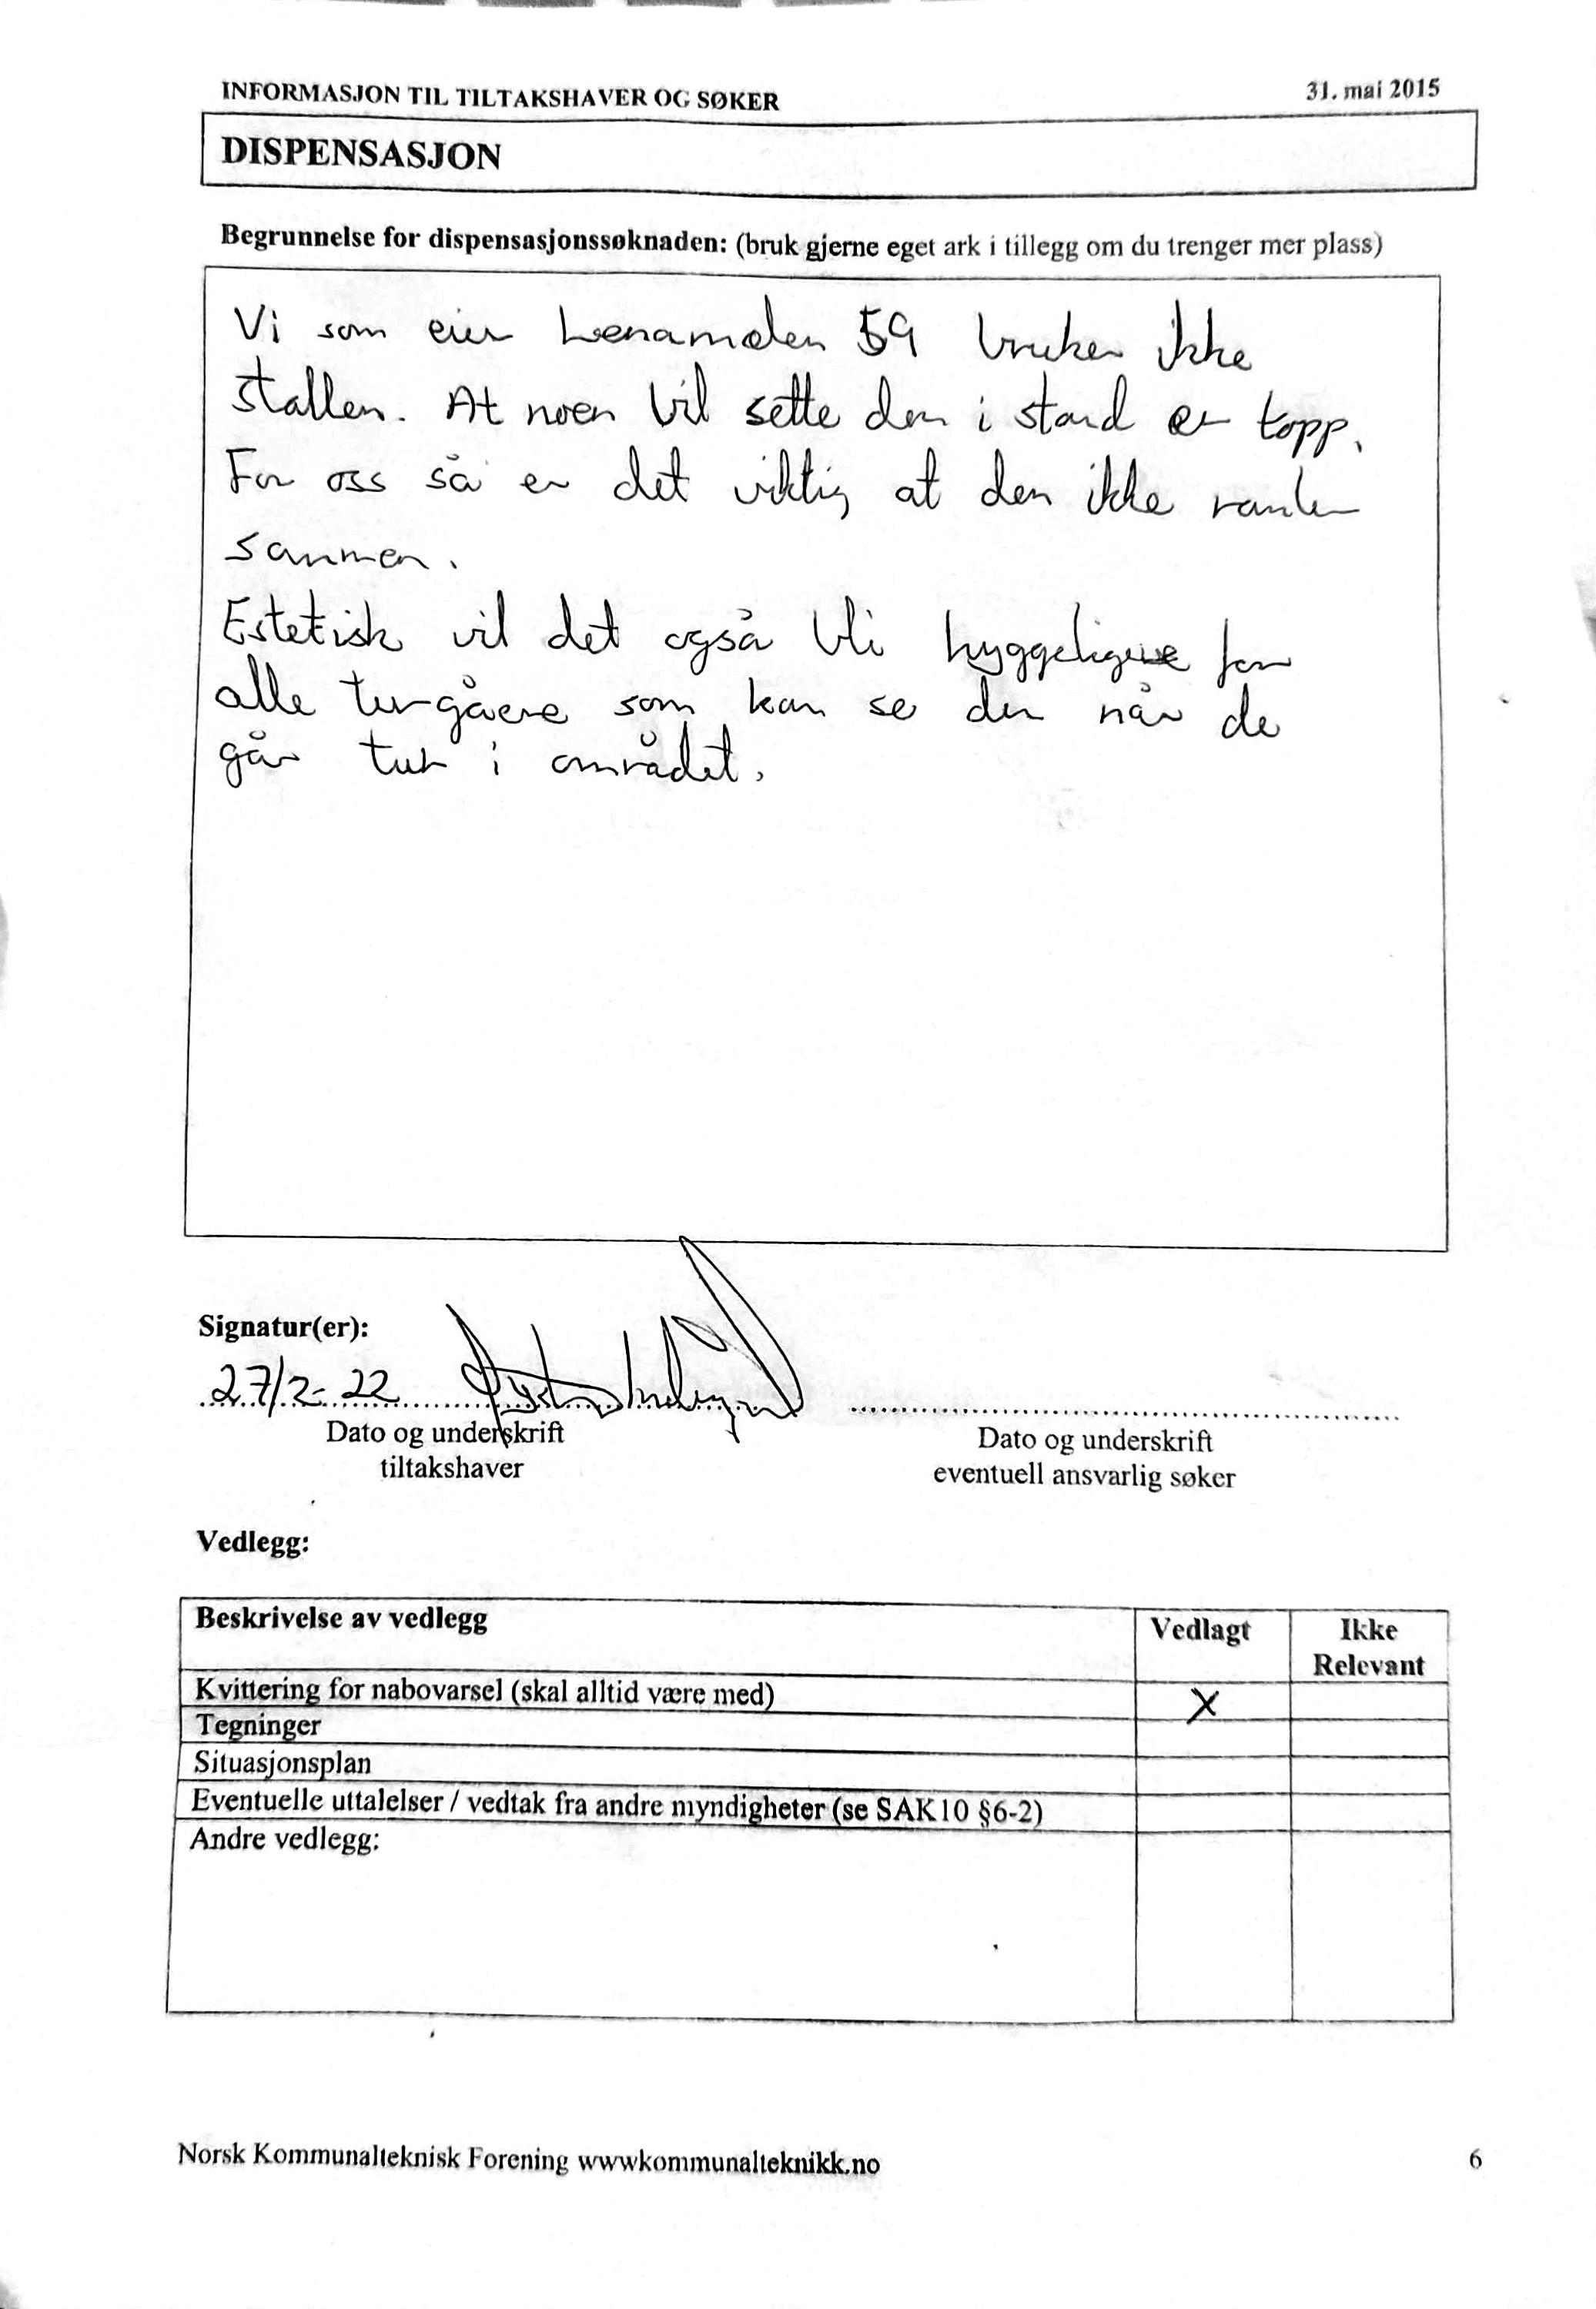 INFORMASJON TIL TILTAKSHAVER OG SØKER
31. mai 2015
DISPENSASJON
Begrunnelse for dispensasjonssøknaden: (bruk gjerne eget ark i tillegg om du trenger mer plass)
Vi som eier 59 bruker ikke
stallen. At noen vil sette den i stand er topp.
For oss så er det viktig at den ikke ramler
sammen.
Estetisk vil det også bli hyggeligere for
alle turgåere som kan se den når de
går tur i området.
Signatur(er):
27/2-22
Dato og underskrift
tiltakshaver
Dato og underskrift
eventuell ansvarlig søker
Vedlegg:
Beskrivelse av vedlegg Vedlagt Ikke
Relevant
Kvittering for nabovarsel (skal alltid være med) X
Tegninger
Situasjonsplan
Eventuelle uttalelser / vedtak fra andre myndigheter (se SAK10 §6-2)
Andre vedlegg:
Norsk Kommunalteknisk Forening wwwkommunalteknikk.no
6